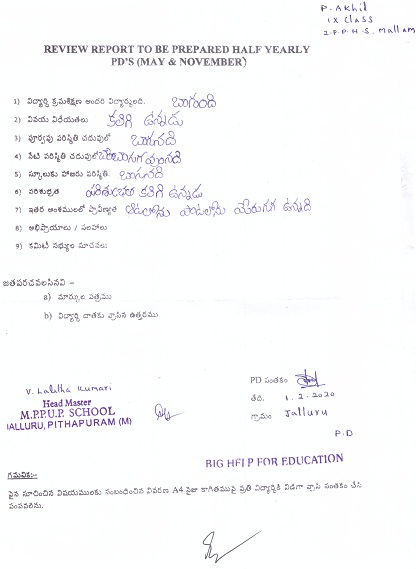 P. Akhil
IX Class
Z.P.P.H.S, Mallam
REVIEW REPORT TO BE PREPARED HALF YEARLY
PD'S (MAY & NOVEMBER)
1) విద్యార్థి క్రమశిక్షణ అందరి విద్యార్థులది. బాగుంది
2) వినయ విధేయతలు కలిగి ఉన్నడు
3) పూర్వపు పరిస్థితి చదువులో బాగునది
4) నేటి పరిస్థితి చదువులో
5) స్కూలుకు హాజరు పరిస్థితి. బాగునది
6) పరిశుభ్రత పరిశుభ్రం కలిగి ఉన్నడు
7) ఇతర అంశములలో ప్రావీణ్యత ఆటలలోను పాటలలోను మెరుగుగ ఉన్నది
8) అభిప్రాయాలు / సలహాలు
9) కమిటీ సభ్యుల సూచనలు
జతపరచవలసినవి –
a) మార్కుల పత్రము
b) విద్యార్థి దాతకు వ్రాసిన ఉత్తరము
PD సంతకం
V. Lalitha Kumari
Head Master
M.P.P.U.P. SCHOOL
IALLURU, PITHAPURAM (M)
తేది. 1.2.2020
గ్రామం Jalluru
P.D
BIG HELP FOR EDUCATION
గమనిక:-
పైన సూచించిన విషయములకు సంబంధించిన వివరణ A4 సైజు కాగితముపై ప్రతి విద్యార్థికి విడిగా వ్రాసి సంతకం చేసి
పంపవలెను.